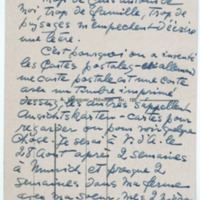 moi, trop de famille, trop de
paysages m'empêchent d'écrire
une lettre.
C'est pourquoi on a inventé
les Cartes postales
une carte postale est une carte
avec un timbre imprimé
dessus, les autres s'appellent
Ansichtskarten - cartes pour
regarder ou pour
chose je serai à
28 août après 2 semaines
à Munich et presque 2
semaines dans ma ferme
avec ma soeur, mes 2